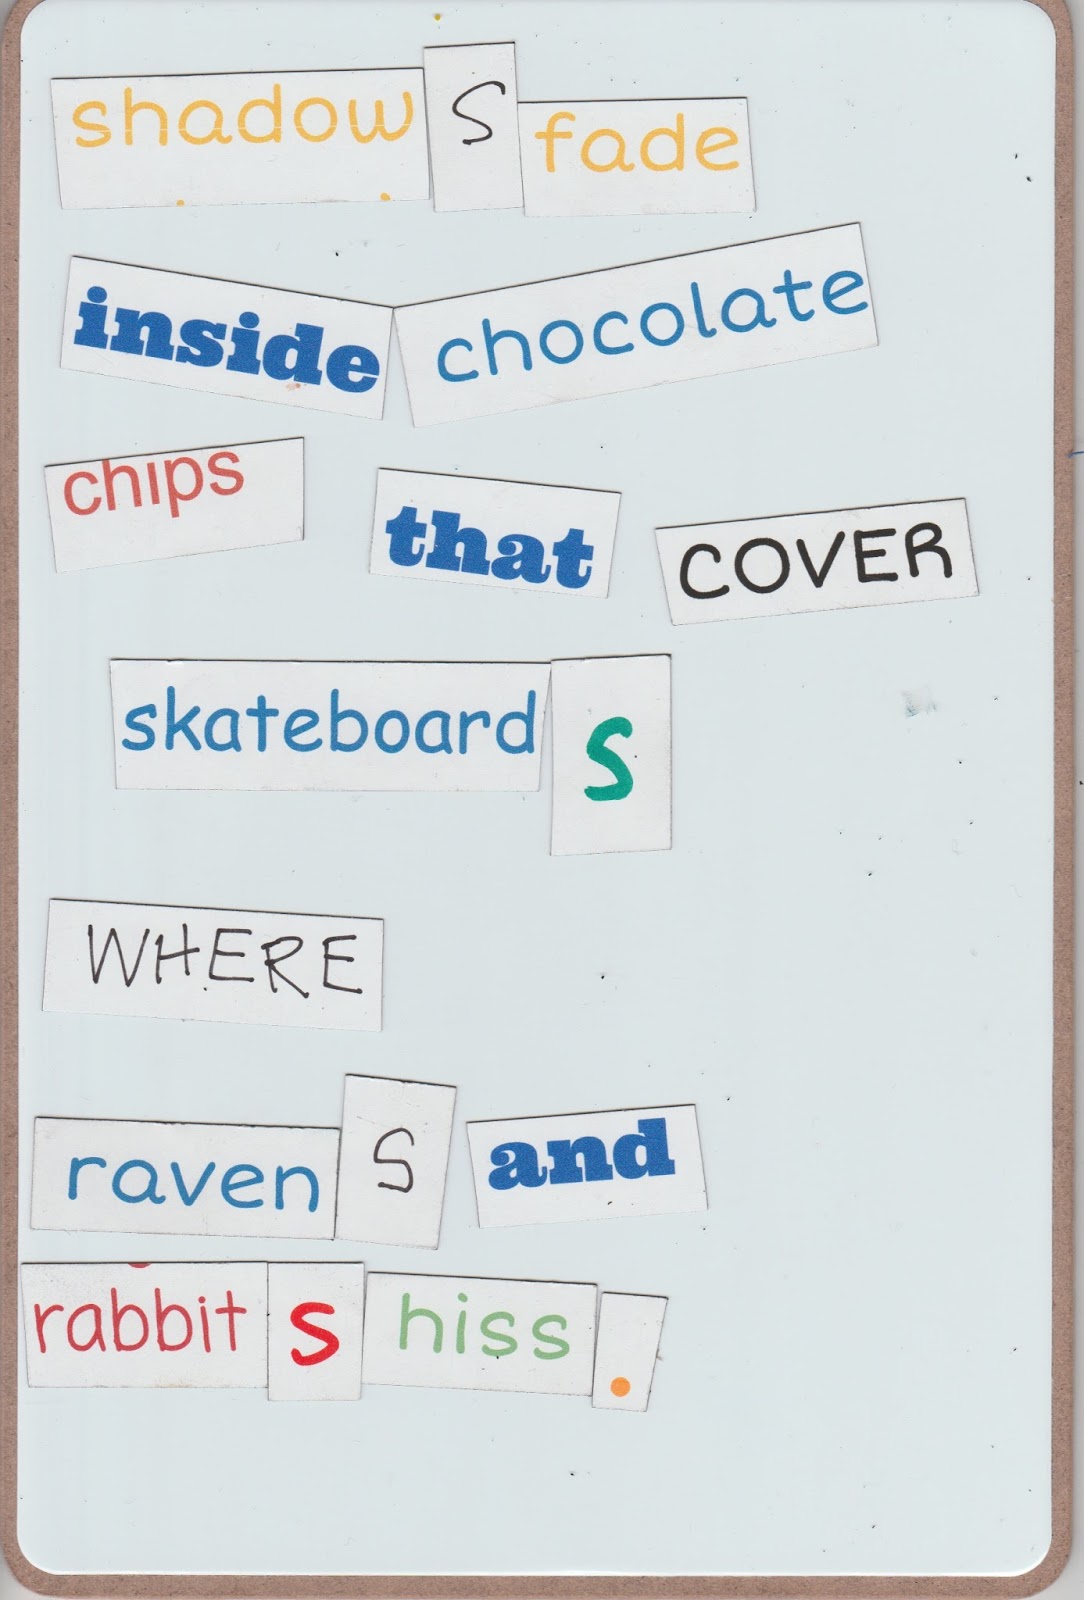 shadows fade
inside chocolate
chips that COVER
skateboards
WHERE
ravens and
rabbits hiss.